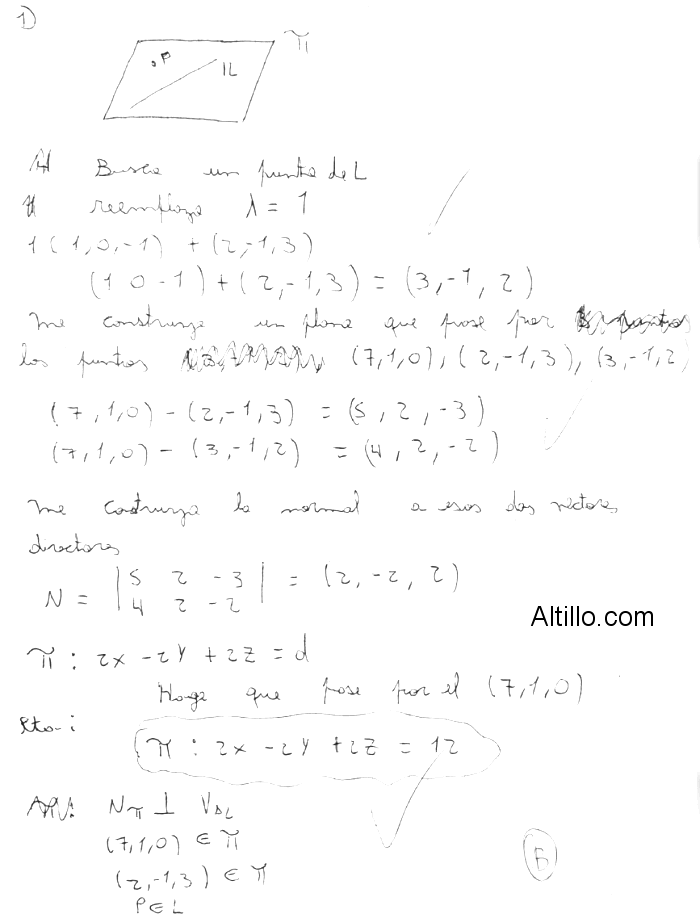 1)
P
IL
π
Busco un punto de L
reemplazo λ = 1
1(1,0,-1) + (2,-1,3)
(1 0 -1) + (2,-1,3) = (3,-1,2)
me construyo un plano que pase por
los puntos (7,1,0), (2,-1,3), (3,-1,2)
(7,1,0) - (2,-1,3) = (5,2,-3)
(7,1,0) - (3,-1,2) = (4,2,-2)
me costruyo la normal a esos dos vectores
directores
N = |5 2 -3| = (2,-2,2)
|4 2 -2|
Altillo.com
π : 2x - 2y + 2z = d
Hago que pase por el (7,1,0)
Rta:
π : 2x - 2y + 2z = 12
Nπ ⊥ VdL
(7,1,0) ∈ π
(2,-1,3) ∈ π
P∈L
B